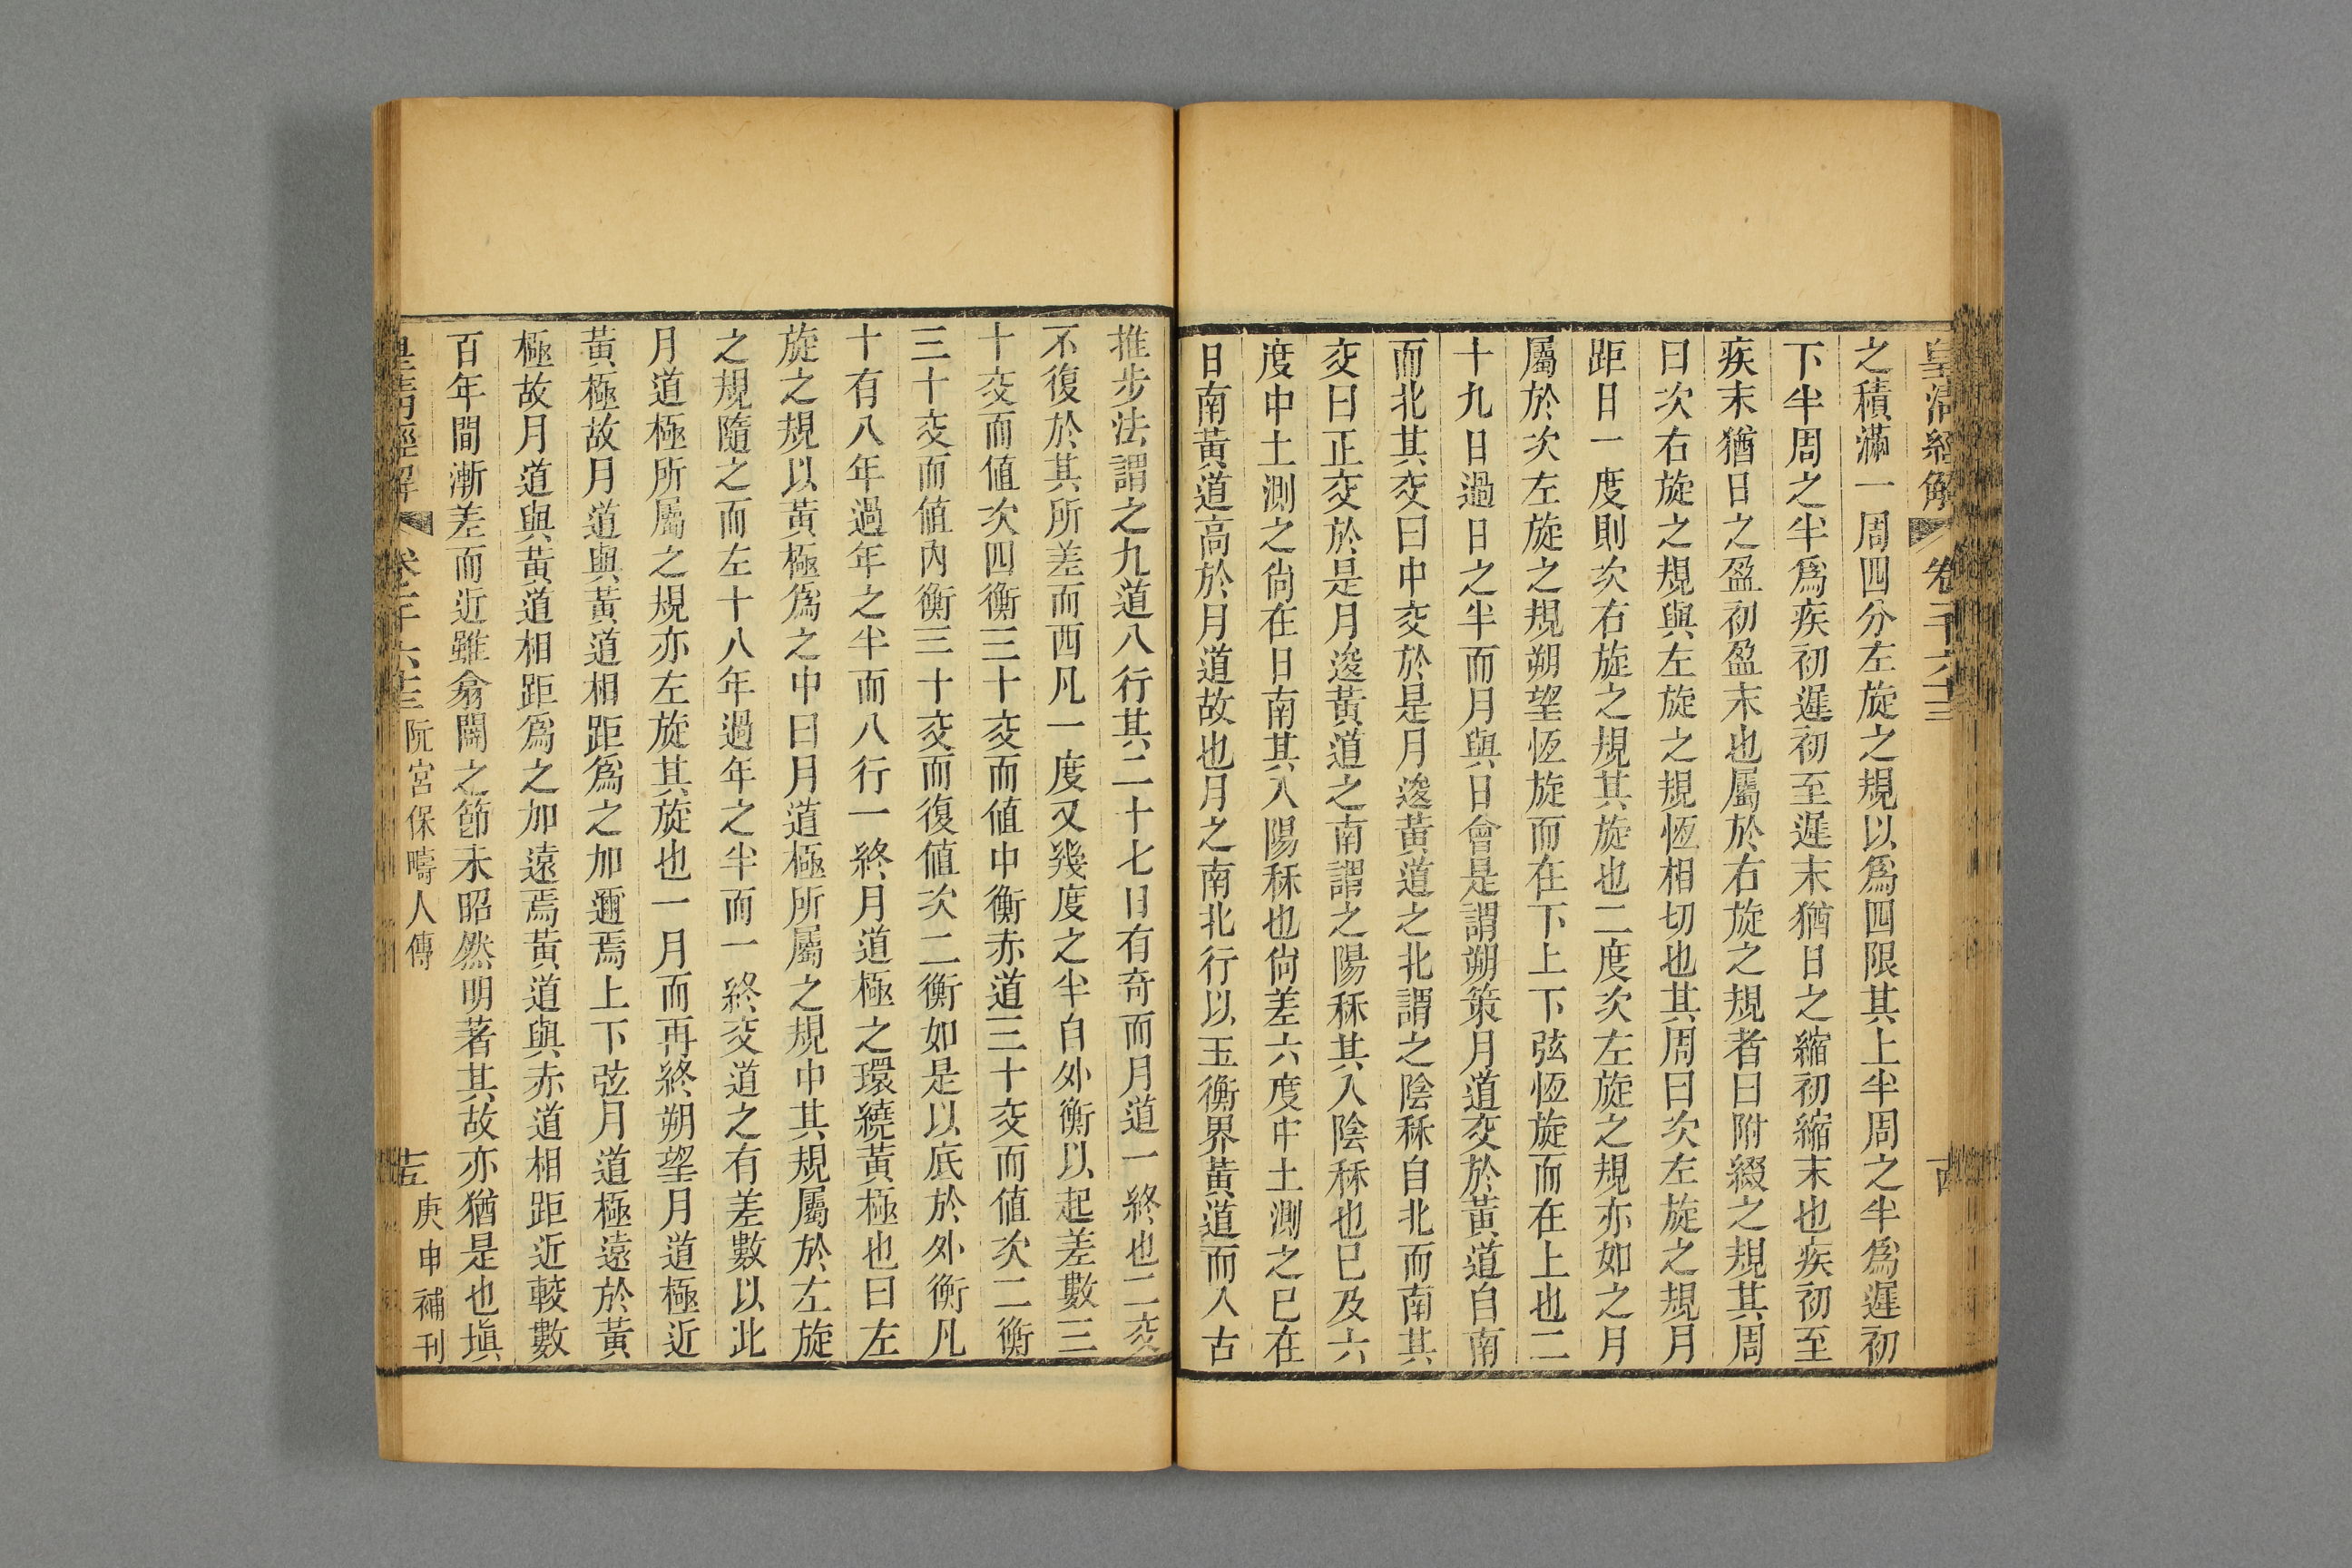 皇清經解 卷千六十三 古
之積滿一周四分左旋之規以爲四限其上半周之半爲遲初
下半周之半爲疾初遲初至遲末猶日之縮初縮末也疾初至
疾末猶日之盈初盈末也屬於右旋之規者曰附綴之規其周
曰次右旋之規與左旋之規恆相切也其周曰次左旋之規月
距日一度則次右旋之規其旋也二度次左旋之規亦如之月
屬於次左旋之規朔望恆旋而在下上下弦恆旋而在上也二
十九日過日之半而月與日會是謂朔策月道交於黃道自南
而北其交曰中交於是月逡黃道之北謂之陰秝自北而南其
交曰正交於是月逡黃道之南謂之陽秝其入陰秝也巳及六
度中土測之尙在日南其入陽秝也尙差六度中土測之巳在
日南黃道高於月道故也月之南北行以玉衡界黃道而入古
推步法謂之九道八行其二十七日有奇而月道一終也二交
不復於其所差而西凡一度又幾度之半自外衡以起差數三
十交而値次四衡三十交而値中衡赤道三十交而值次二衡
三十交而値內衡三十交而復値次二衡如是以底於外衡凡
十有八年過年之半而八行一終月道極之環繞黃極也曰左
旋之規以黃極爲之中曰月道極所屬之規中其規屬於左旋
之規隨之而左十八年過年之半而一終交道之有差數以此
月道極所屬之規亦左旋其旋也一月而再終朔望月道極近
黃極故月道與黃道相距爲之加邇焉上下弦月道極遠於黃
極故月道與黃道相距爲之加遠焉黃道與赤道相距近較數
百年間漸差而近雖翕闢之節未昭然明著其故亦猶是也塡
皇淸經解 卷千六十三 阮宮保疇人傳 十五 庚申補刊